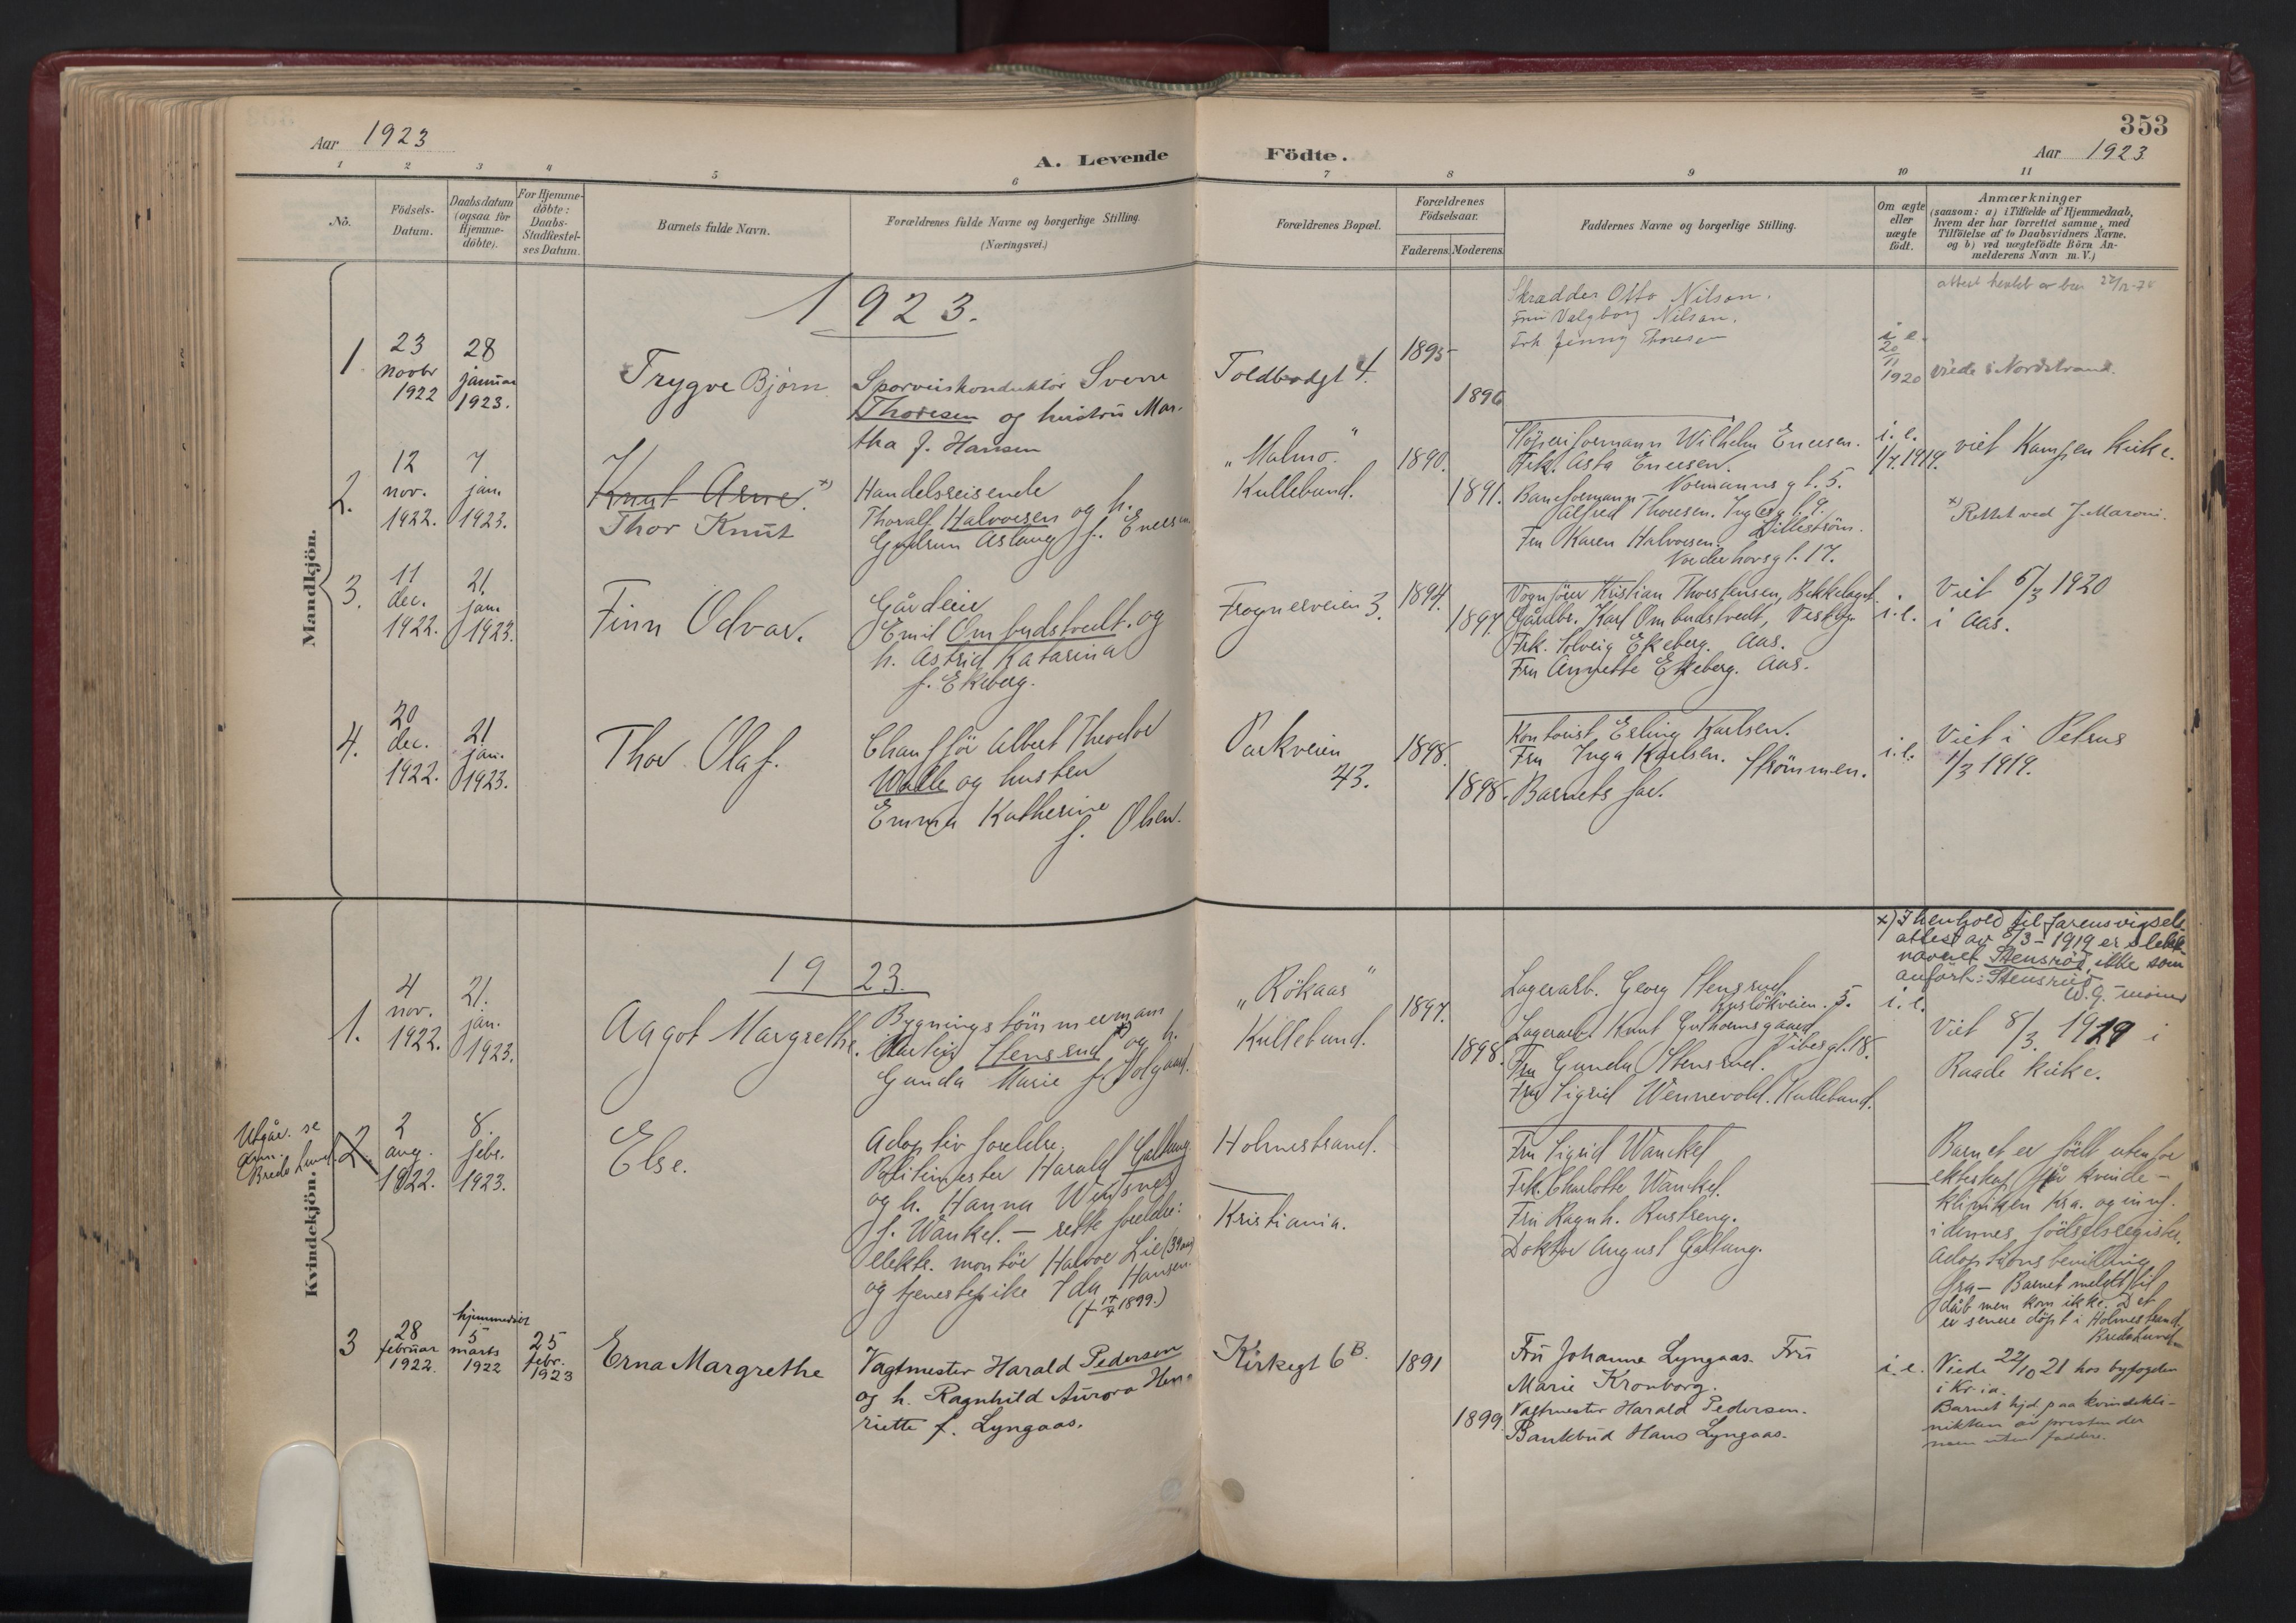 353
Aar 1923
A. Levende Födte.
Aar 1923
1 2 3 4 5 6 7 8 9 10 11
No.
Födsels-
Datum.
Daabsdatum
(ogsaa for
Hjemme-
döbte).
For Hjemme-
döbte:
Daabs-
Stadfestel-
ses Datum.
Barnets fulde Navn.
Forældrenes fulde Navne og borgerlige Stilling.
(Næringsvei.)
Forældrenes Bopæl.
Forældrenes
Födselsaar.
Faderens
Moderens
Faddernes Navne og borgerlige Stilling.
Om ægte
eller
uægte
födt.
Anmærkninger
(saasom: a) i Tilfælde af Hjemmedaab,
hvem der har forrettet samme, med
Tilföielse af to Daabsvidners Navne,
og b) ved uægtefödte Börn An-
melderens Navn m. V.)
Mandkjön.
1923.
1
23
novbr
1922
28
januar
1923.
Trygve Bjørn
Sporveiskonduktör Sverre
Thoresen og hustru Mar-
tha f. Hansen
Toldbodgt 4.
1895
1896
Skrædder Otto Nilsen.
Fru Valgborg Nilsen.
Frk Jenny Thoresen
i e.
20
11
1920
viede i Nordstrand.
2.
12
nov.
1922.
7
jan.
1923.
Knut Arne. x)
Thor Knut
Handelsreisende
Thoralf Halvorsen og h.
Gudrun Aslaug f. Enersen
"Malmo"
Kullebund.
1890.
1891.
Wilhelm Enersen.
Frk. Asta Enersen.
Normannsgt. 5.
Alfred Thoresen.
Lilleström.
Fru Karen Halvorsen.
Norderhovsgt. 17.
i. e.
1/7.1919.
viet Kampen kirke.
x) Rettet ved J. Maroni.
3.
11
dec.
1922.
21.
jan.
1923.
Finn Odvar.
Gårdeier
Emil Ombudstvedt og
h. Astrid Katarina
f. Ekeberg.
Frognerveien 3.
1894.
1897.
Vognförer Kristian Thorstensen, Bekkelaget
Gårdbr. Karl Ombudstvedt, Vestby
Frk. Solveig Ekeberg. Aas.
Fru Annette Ekeberg. Aas.
i. e.
Viet 5/3 1920
i Aas.
4.
20
dec.
1922.
21
jan.
1923.
Thor Olaf.
Chauffør Albert Theodor
Walle og hustru
Emma Katherine
f. Olsen.
Parkveien
43.
1898.
1898.
Kontorist Erling Karlsen.
Fru Inga Karlsen. Strömmen.
Barnets far.
i. e.
Viet i Petrus
1/3 1919.
Kvindekjön.
1923.
1.
4
nov.
1922.
21.
jan.
1923.
Aagot Margrethe.
Bygningstömmermann
Stensrud x) og h.
Gunda Marie f. Holgaard.
"Rökaas"
Kullebund.
1897.
1898.
Lagerarb. Georg Stensrud
Ruslökveien. 5.
Lagerarb. Knut Gulhornsgaard
Vibesgt. 18.
Fru Gunda Stensrud.
Fru Sigrid Wennevold. Kullebund.
i. e.
x) I henhold til farens vigsels-
attest av 8/3-1919 er slekts-
navnet Stensröd, ikke som
anfört: Stensrud
Viet 8/3. 1919 i
Raade kirke.
Utgår. se
anm.
Bredo Lund.
2.
2
aug.
1922.
8.
febr.
1923.
Else.
Adoptivforeldre.
Politimester Harald Galtung
og h. Hanna
f. Wankel. — rette foreldre:
elektr. montör Halvor Lie (39 aar)
og tjenestepike Ida Hansen.
(f. 17/4 1899.)
Holmestrand.
Kristiania.
Fru Sigrid Wankel
Frk. Charlotte Wankel.
Fru Ragnh. Rustreng.
Doktor August Galtung.
Barnet er födt utenfor
ekteskap på kvinde-
klinikken Kra. og innf.
i dennes födselsregister.
Adoptionsbevilling
fra — Barnet meldt til
dåb men kom ikke. Det
er senere döpt i Holmestrand.
Bredo Lund.
3
28
februar
1922.
hjemmedöpt
5
marts
1922
25
febr.
1923
Erna Margrethe
Vagtmester Harald Pedersen
og h. Ragnhild Aurora Hen-
riette f. Lyngaas.
Kirkegt 6 B.
1891
1899.
Fru Johanna Lyngaas. Fru
Marie Kronborg.
Vagtmester Harald Pedersen.
Bankbud Hans Lyngaas.
i. e.
Viede 22/10 21 hos byfogden
i Kr.ia.
Barnet hjd. paa kvindekli-
nikken av presten der
men uten faddere.